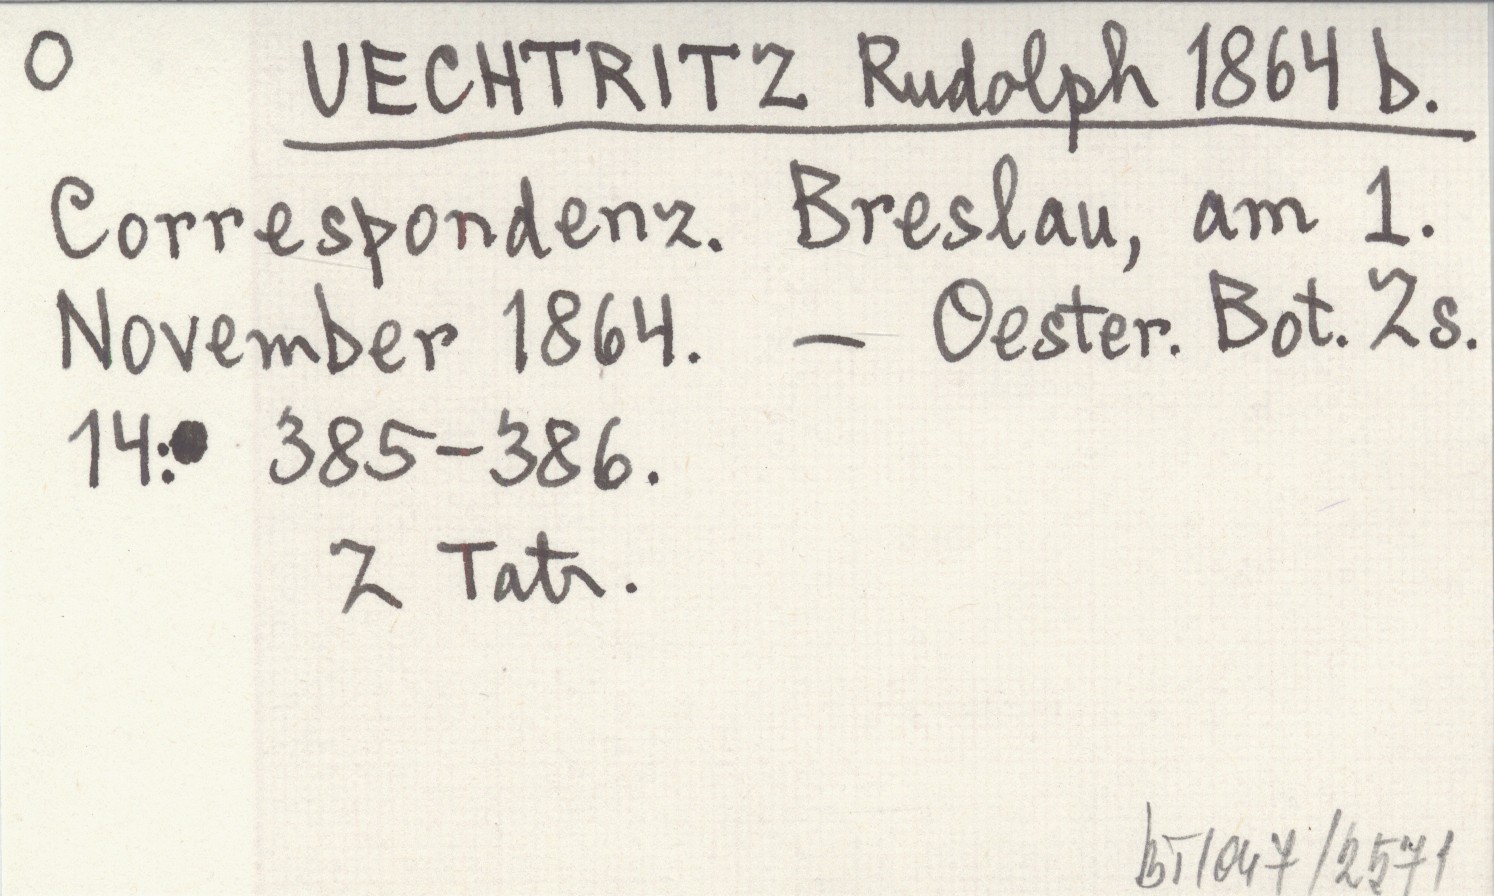 O UECHTRITZ Rudolph 1864 b.
Correspondenz. Breslau, am 1.
November 1864. — Oester. Bot. Zs.
14: 385-386.
Z Tatr.
BT/047/2571